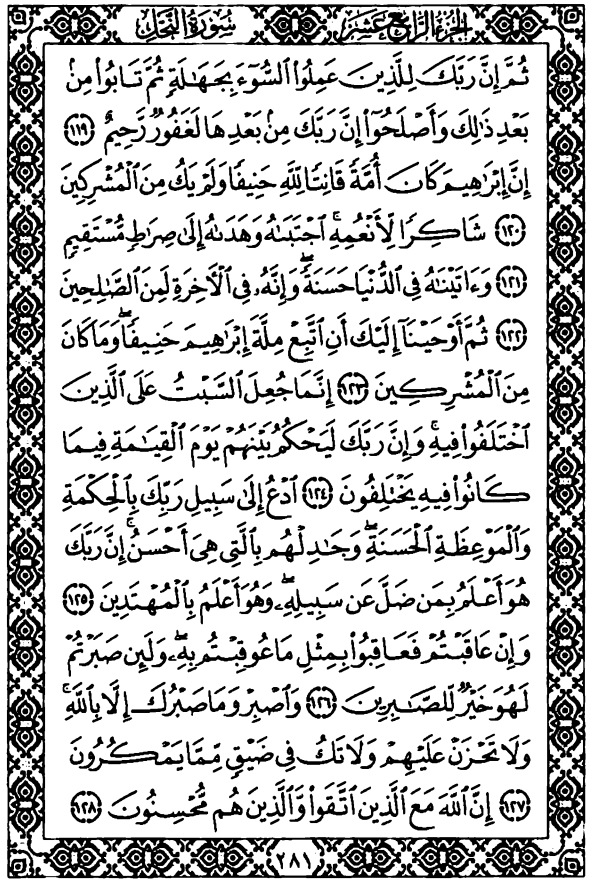 الجزء الرابع عشر سورة النحل
ثُمَّ إِنَّ رَبَّكَ لِلَّذِينَ عَمِلُوا۟ ٱلسُّوٓءَ بِجَهَٰلَةٍ ثُمَّ تَابُوا۟ مِنۢ
بَعْدِ ذَٰلِكَ وَأَصْلَحُوٓا۟ إِنَّ رَبَّكَ مِنۢ بَعْدِهَا لَغَفُورٌ رَّحِيمٌ ١١٩
إِنَّ إِبْرَٰهِيمَ كَانَ أُمَّةً قَانِتًا لِّلَّهِ حَنِيفًا وَلَمْ يَكُ مِنَ ٱلْمُشْرِكِينَ
١٢٠ شَاكِرًا لِّأَنْعُمِهِ ۚ ٱجْتَبَىٰهُ وَهَدَىٰهُ إِلَىٰ صِرَٰطٍ مُّسْتَقِيمٍ
١٢١ وَءَاتَيْنَٰهُ فِى ٱلدُّنْيَا حَسَنَةً ۖ وَإِنَّهُۥ فِى ٱلْءَاخِرَةِ لَمِنَ ٱلصَّٰلِحِينَ
١٢٢ ثُمَّ أَوْحَيْنَآ إِلَيْكَ أَنِ ٱتَّبِعْ مِلَّةَ إِبْرَٰهِيمَ حَنِيفًا ۖ وَمَا كَانَ
مِنَ ٱلْمُشْرِكِينَ ١٢٣ إِنَّمَا جُعِلَ ٱلسَّبْتُ عَلَى ٱلَّذِينَ
ٱخْتَلَفُوا۟ فِيهِ ۚ وَإِنَّ رَبَّكَ لَيَحْكُمُ بَيْنَهُمْ يَوْمَ ٱلْقِيَٰمَةِ فِيمَا
كَانُوا۟ فِيهِ يَخْتَلِفُونَ ١٢٤ ٱدْعُ إِلَىٰ سَبِيلِ رَبِّكَ بِٱلْحِكْمَةِ
وَٱلْمَوْعِظَةِ ٱلْحَسَنَةِ ۖ وَجَٰدِلْهُم بِٱلَّتِى هِىَ أَحْسَنُ ۚ إِنَّ رَبَّكَ
هُوَ أَعْلَمُ بِمَن ضَلَّ عَن سَبِيلِهِۦ ۖ وَهُوَ أَعْلَمُ بِٱلْمُهْتَدِينَ ١٢٥
وَإِنْ عَاقَبْتُمْ فَعَاقِبُوا۟ بِمِثْلِ مَا عُوقِبْتُم بِهِۦ ۖ وَلَئِن صَبَرْتُمْ
لَهُوَ خَيْرٌ لِّلصَّٰبِرِينَ ١٢٦ وَٱصْبِرْ وَمَا صَبْرُكَ إِلَّا بِٱللَّهِ ۚ
وَلَا تَحْزَنْ عَلَيْهِمْ وَلَا تَكُ فِى ضَيْقٍ مِّمَّا يَمْكُرُونَ
١٢٧ إِنَّ ٱللَّهَ مَعَ ٱلَّذِينَ ٱتَّقَوا۟ وَّٱلَّذِينَ هُم مُّحْسِنُونَ ١٢٨
٢٨١